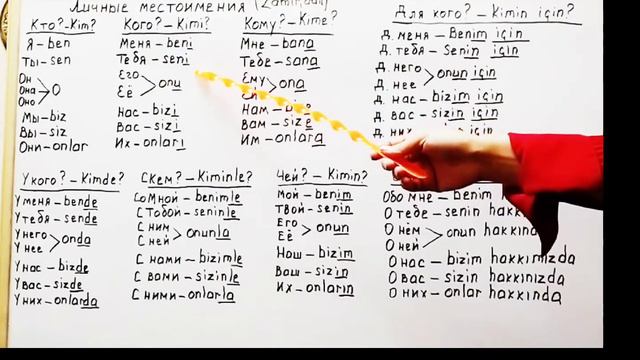 Личные местоимения
Кто?-Kim?
Я-ben
Ты-sen
Он
Она
Оно
O
Мы-biz
Вы-siz
Они-onlar
Кого?-Kimi?
Меня-beni
Тебя-seni
Его
Её
onu
Нас-bizi
Вас-sizi
Их-onları
Кому?-Kime?
Мне-bana
Тебе-sana
Ему
ona
Нам-
Вам-size
Им-onlara
Для кого?-Kimin için?
Д. меня-Benim için
Д. тебя-Senin için
Д. него
Д. нее
onun için
Д. нас-bizim için
Д. вас-sizin için
Д. них-
У кого?-Kimde?
У меня-bende
У тебя-sende
У него
У нее
onda
У нас-bizde
У вас-sizde
У них-onlarda
С кем?-Kiminle?
Со мной-benimle
С тобой-seninle
С ним
С ней
onunla
С нами-bizimle
С вами-sizinle
С ними-onlarla
Чей?-Kimin?
Мой-benim
Твой-senin
Его
Её
onun
Наш-bizim
Ваш-sizin
Их-onların
Обо мне-benim
О тебе-senin hakkın
О нём
О ней
onun hakkında
О нас-bizim hakkımızda
О вас-sizin hakkınızda
О них-onlar hakkında